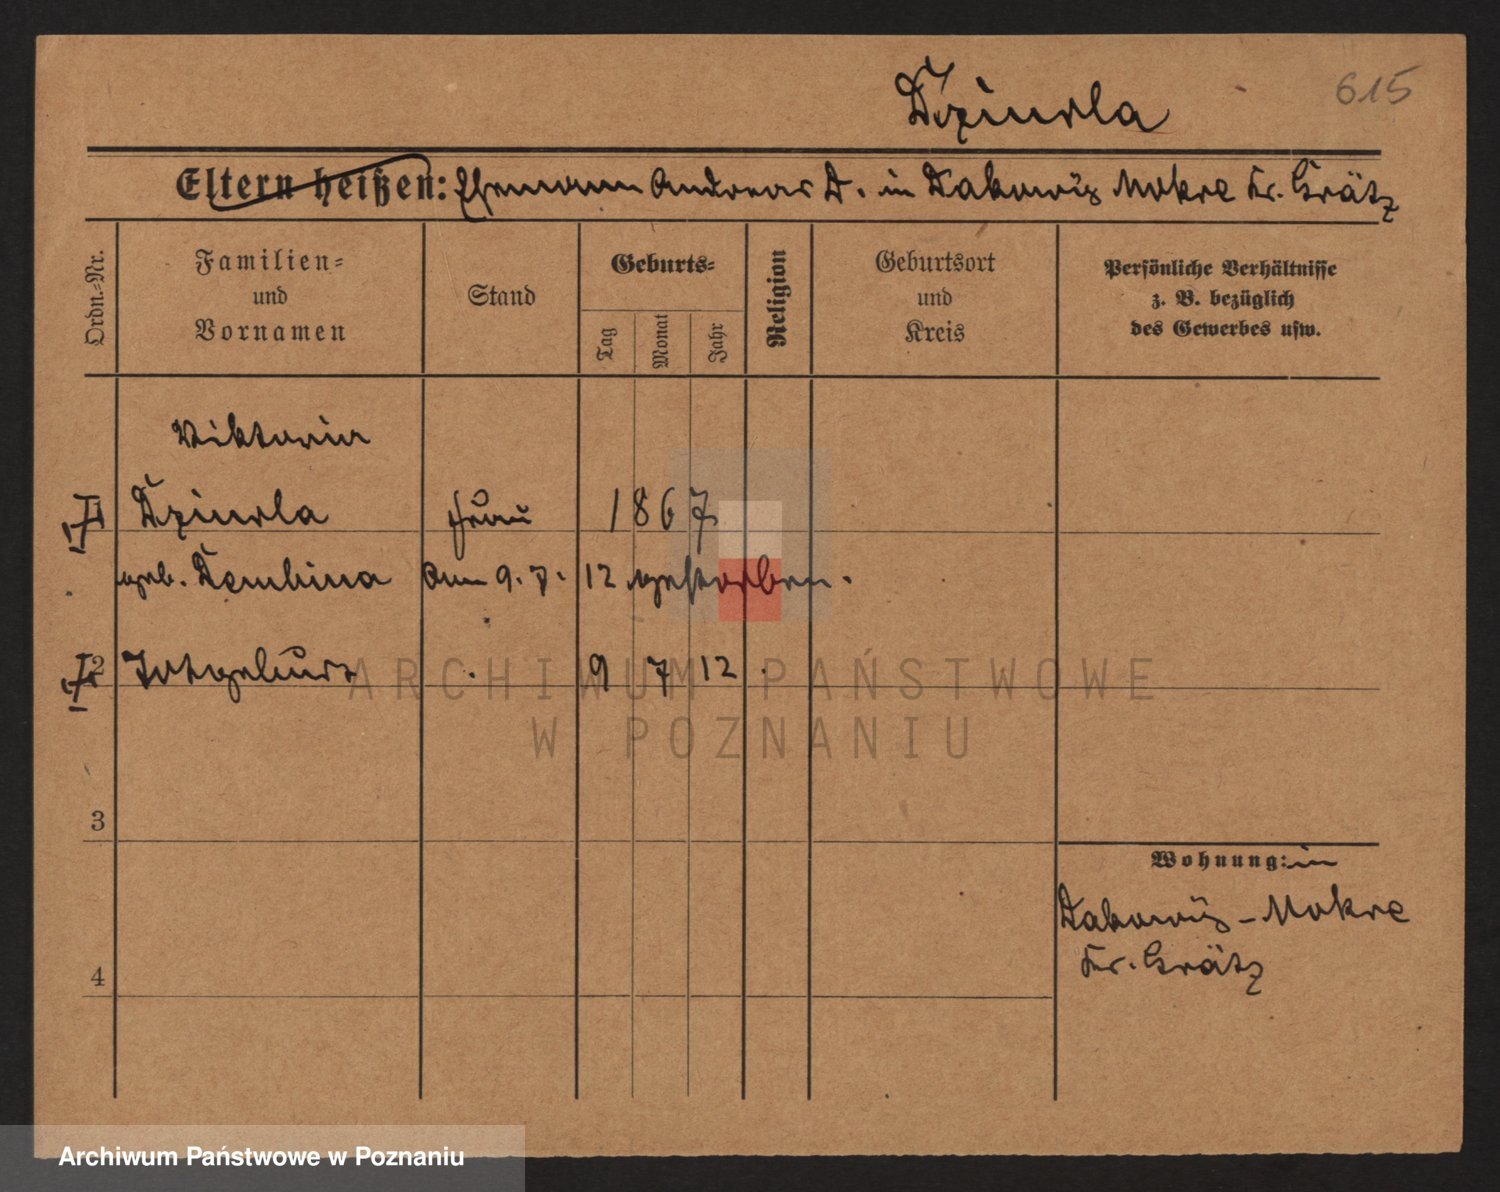 615
Dziurla
Eltern heißen: Ehemann Andreas D. in Dakowÿ Mokre Kr. Grätz
Ordn.-Nr.
Familien-
und
Vornamen
Stand
Geburts-
Tag
Monat
Jahr
Religion
Geburtsort
und
Kreis
Persönliche Verhältnisse
z. B. bezüglich
des Gewerbes usw.
Viktoria
1 Dziurla Frau 1867
geb. Dembina Am 9. 7. 12 gestorben.
2 Totgeburt . 9 7 12 .
ARCHIWUM PAŃSTWOWE
W POZNANIU
3
Wohnung: in
Dakowÿ - Mokre
Kr. Grätz
4
Archiwum Państwowe w Poznaniu